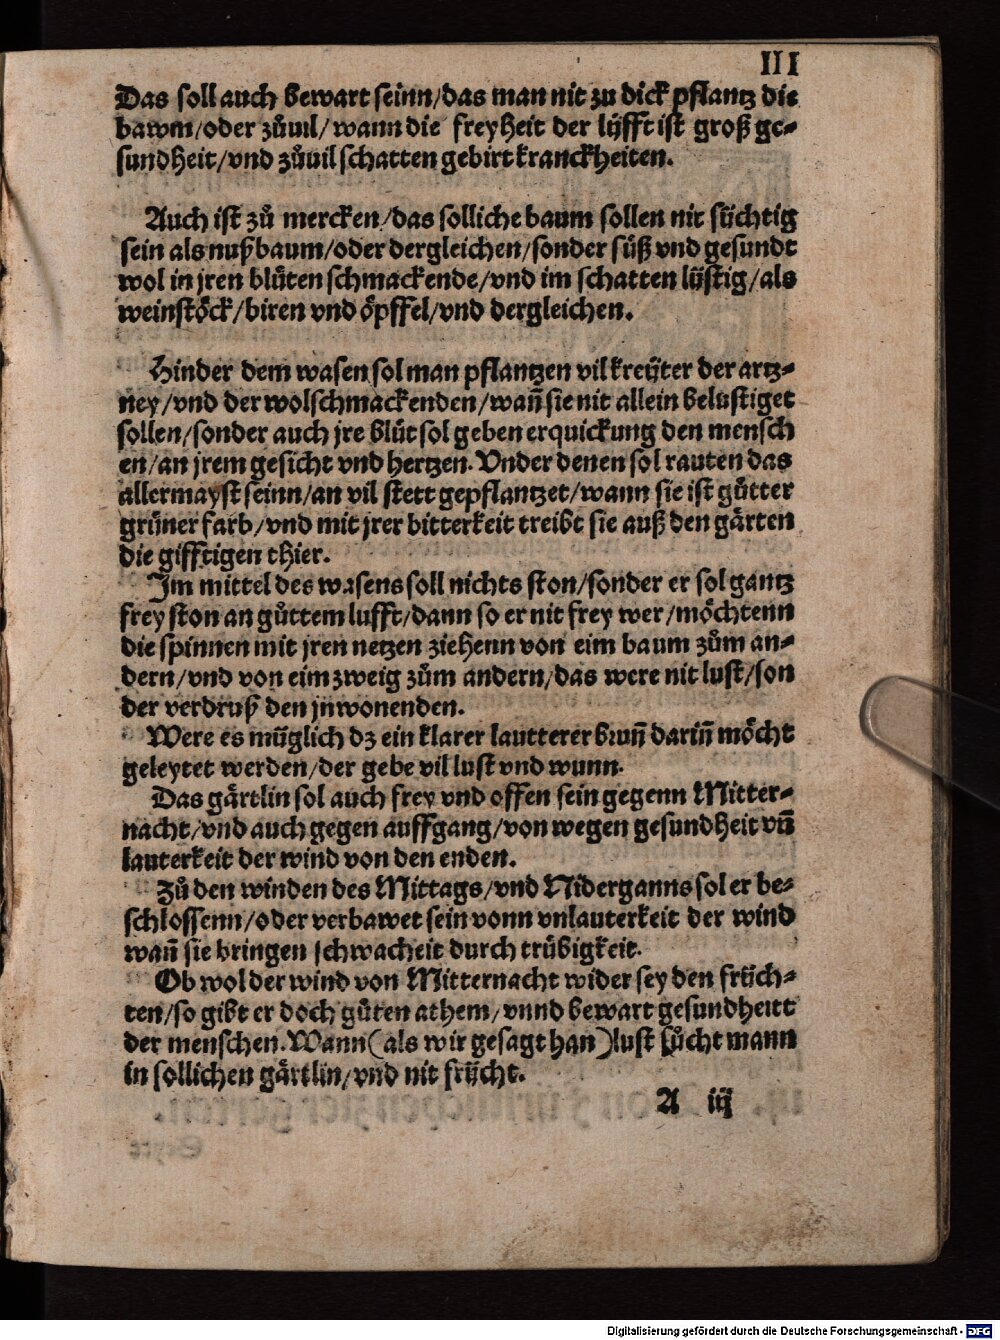 III
Das soll auch bewart seinn/das man nit zu dick pflantz die
bawm/oder zůuil/wann die freyheit der lüfft ist groß ge-
sundheit/vnd zůuil schatten gebirt kranckheiten.
Auch ist zů mercken/das solliche baum sollen nit süchtig
sein als nußbaum/oder dergleichen/sonder süß vnd gesundt
wol in jren blůten schmackende/vnd im schatten lüstig/als
weinstöck/biren vnd öpffel/vnd dergleichen.
Hinder dem wasen sol man pflantzen vil kreüter der artz-
ney/vnd der wolschmackenden/wañ sie nit allein belustiget
sollen/sonder auch jre blůt sol geben erquickung den mensch
en/an jrem gesicht vnd hertzen. Vnder denen sol rauten das
allermayst seinn/an vil stett gepflantzet/wann sie ist gůtter
grüner farb/vnd mit jrer bitterkeit treibt sie auß den gärten
die gifftigen thier.
Im mittel des wasens soll nichts ston/sonder er sol gantz
frey ston an gůttem lufft/dann so er nit frey wer/möchtenn
die spinnen mit jren netzen ziehenn von eim baum zům an-
dern/vnd von eim zweig zům andern/das were nit lust/son
der verdruß den jnwonenden.
Were es müglich dz ein klarer lautterer bruñ dariñ möcht
geleytet werden/der gebe vil lust vnd wunn.
Das gärtlin sol auch frey vnd offen sein gegenn Mitter-
nacht/vnd auch gegen auffgang/von wegen gesundheit vñ
lauterkeit der wind von den enden.
Zů den winden des Mittags/vnd Niderganns sol er be-
schlossenn/oder verbawet sein vonn vnlauterkeit der wind
wañ sie bringen schwacheit durch trübigkeit.
Ob wol der wind von Mitternacht wider sey den früch-
ten/so gibt er doch gůten athem/vnnd bewart gesundheitt
der menschen. Wann (als wir gesagt han) lust sůcht mann
in sollichen gärtlin/vnd nit frücht.
A iij
Digitalisierung gefördert durch die Deutsche Forschungsgemeinschaft - DFG